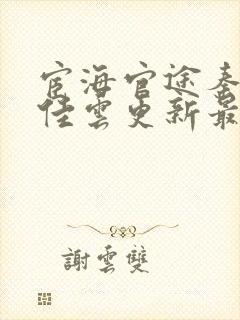 宦海官途秦
佳雲更新最
謝雲雙